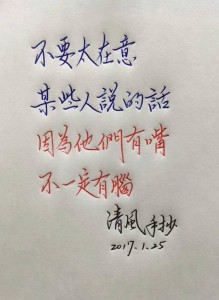 不要太在意
某些人説的話
因為他們有嘴
不一定有腦
清風手抄
2017.1.25